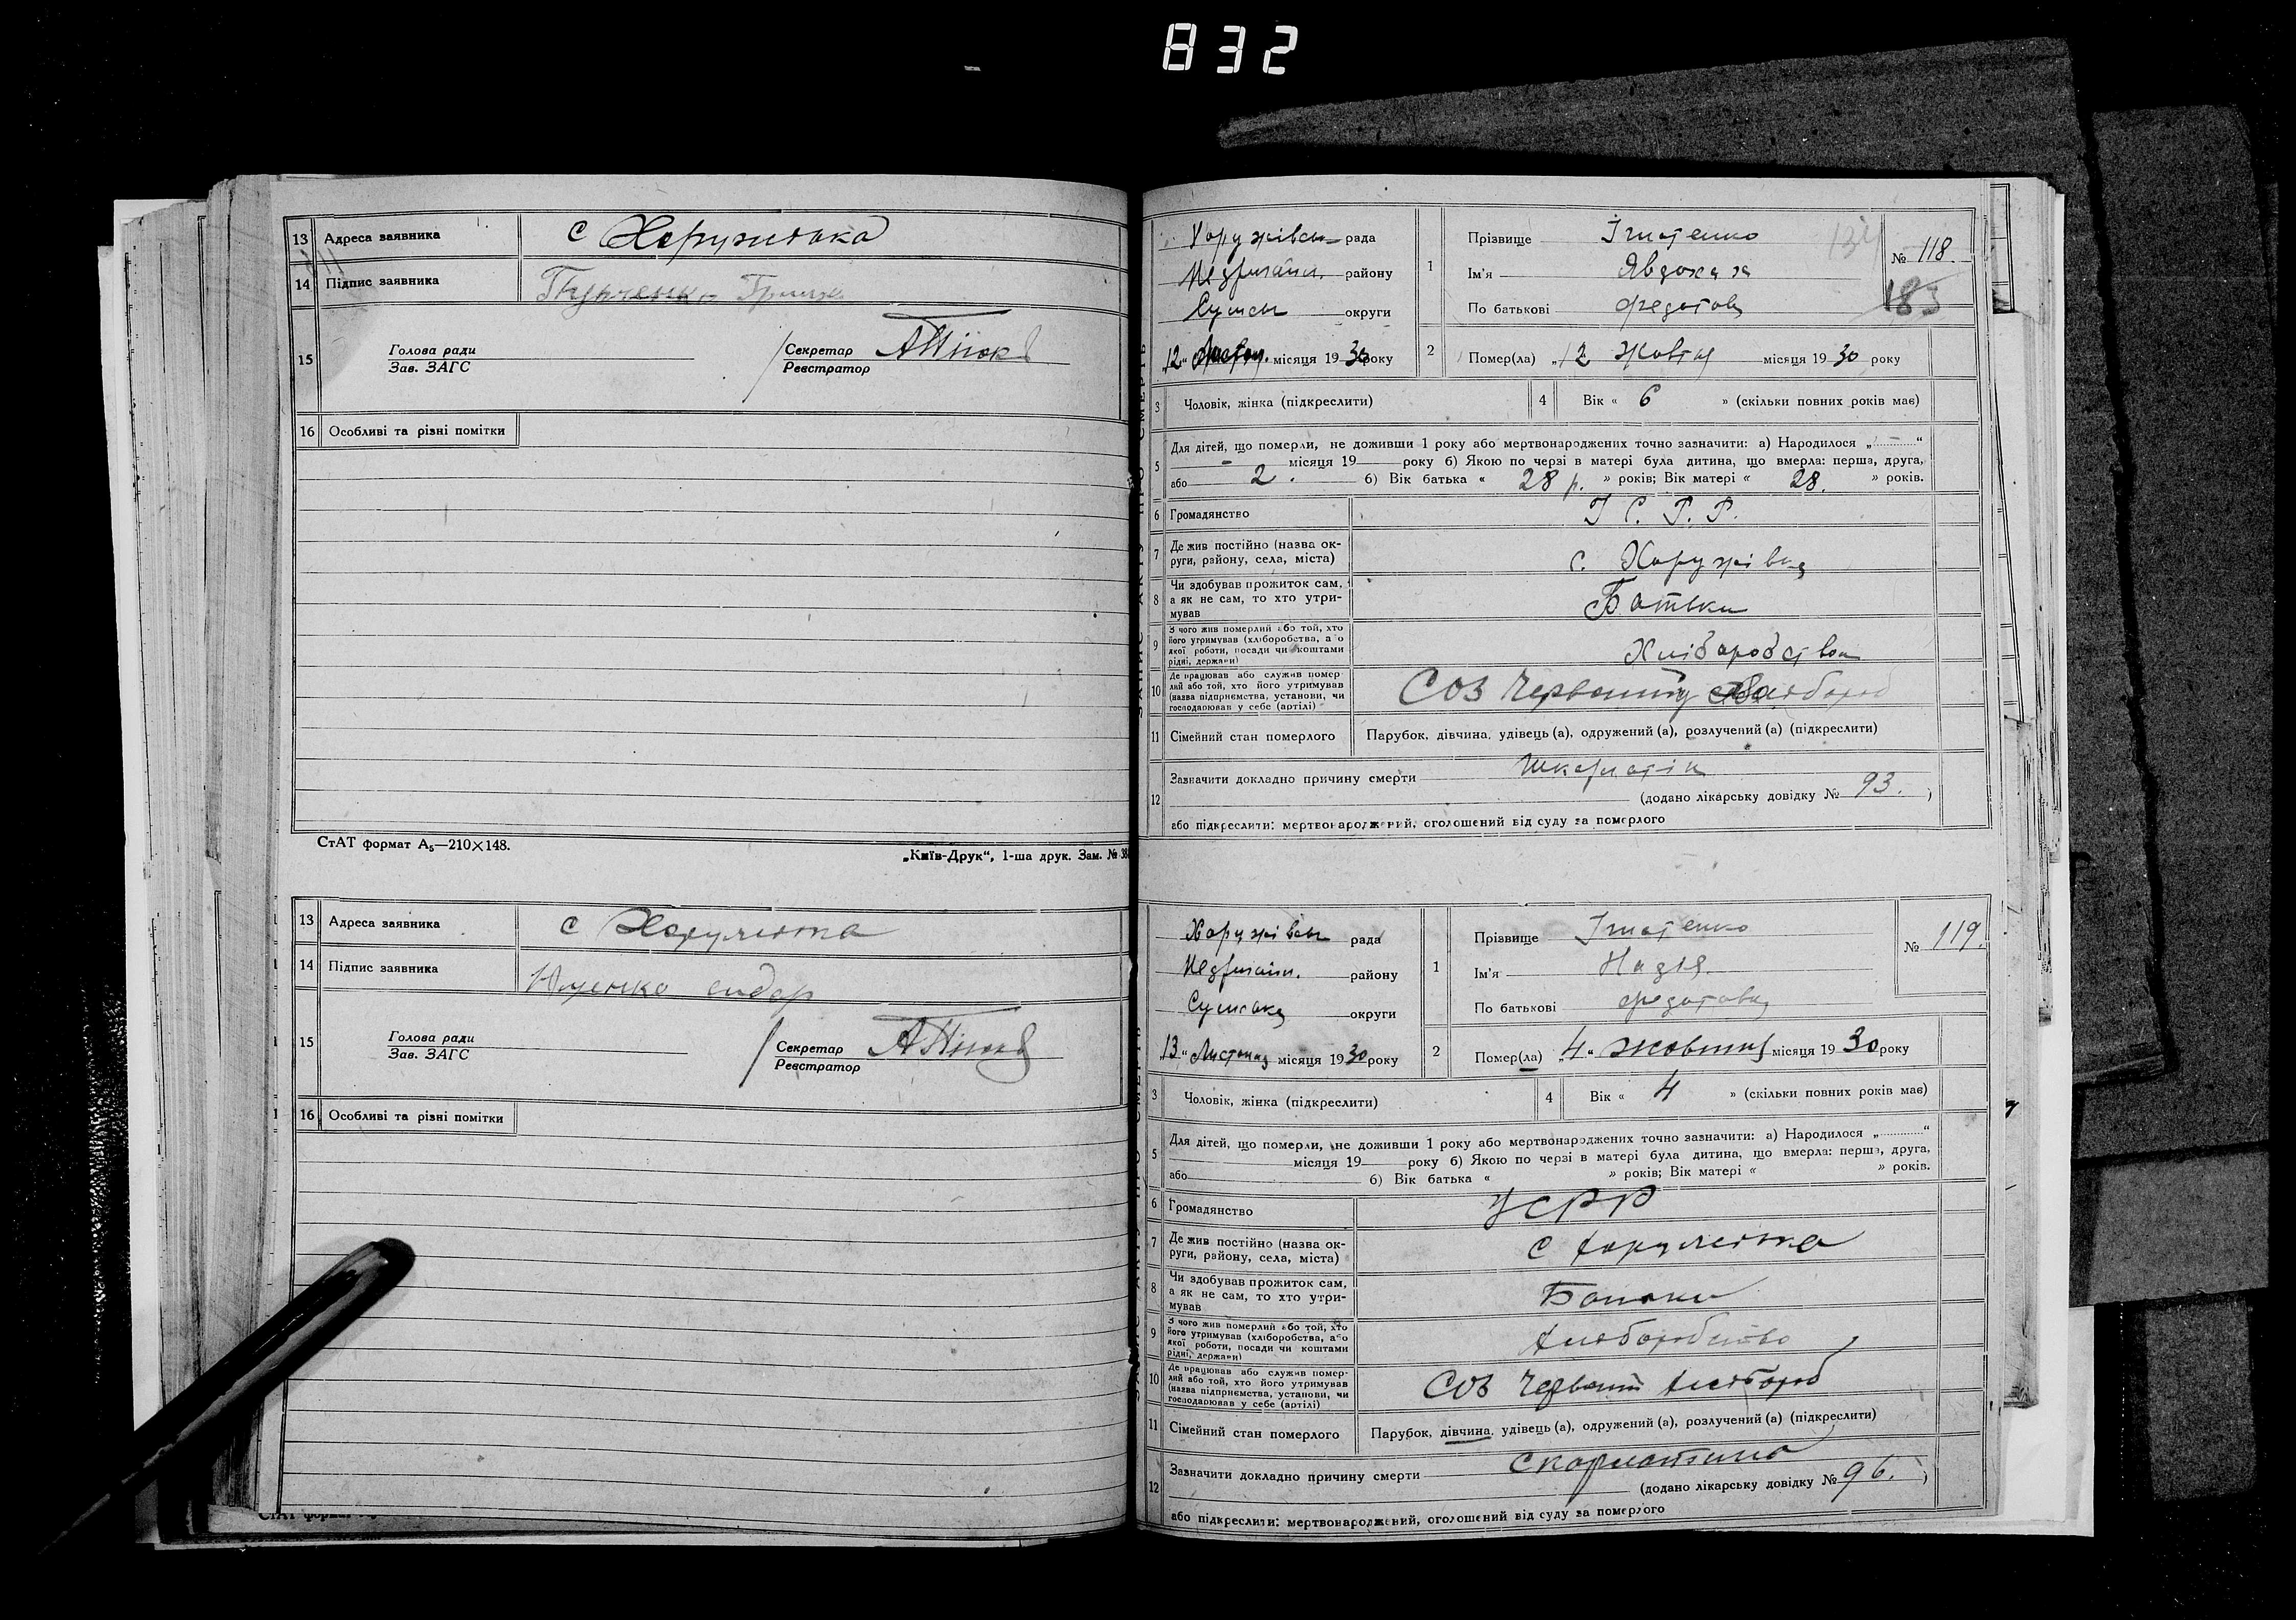 832
13 Адреса заявника с Хоружівка
14 Підпис заявника
15 Голова ради
Зав. ЗАГС
Секретар
Реєстратор
16 Особливі та різні помітки
СтАТ формат А5—210×148.
„Київ-Друк“, 1-ша друк. Зам. №
13 Адреса заявника с Хоружівка
14 Підпис заявника
15 Голова ради
Зав. ЗАГС
Секретар
Реєстратор
16 Особливі та різні помітки
Хоружівськ рада
Недригайл. району
Сумськ округи
„12“ місяця 1930 року
1 Прізвище Ігнатенко
Ім'я Явдокия
По батькові Федотов
№ 118.
183
134
2 Помер(ла) „12 Жовтн місяця 1930 року
3 Чоловік, жінка (підкреслити)
4 Вік « 6 » (скільки повних років має)
5 Для дітей, що померли, не доживши 1 року або мертвонароджених точно зазначити: а) Народилося „ “
місяця 19 року б) Якою по черзі в матері була дитина, що вмерла: перша, друга,
або 2. б) Вік батька « 28 р. » років; Вік матері « 28. » років.
6 Громадянство У С. Р. Р.
7 Де жив постійно (назва округи, району, села, міста) с. Хоружівка
8 Чи здобував прожиток сам, а як не сам, то хто утримував Батьки
9 З чого жив померлий або той, хто його утримував (хліборобства, або якої роботи, посади чи коштами рідні, держави) Хліборобством
10 Де працював або служив померлий або той, хто його утримував (назва підприємства, установи, чи господарював у себе (артілі) СОЗ Червоний хлібороб
11 Сімейний стан померлого Парубок, дівчина, удівець (а), одружений (а), розлучений (а) (підкреслити)
12 Зазначити докладно причину смерти Шкарлатін
(додано лікарську довідку № 93. )
або підкреслити: мертвонароджений, оголошений від суду за померлого
Хоружівськ рада
Недригайл. району
Сумська округи
„13“ Листопад місяця 1930 року
1 Прізвище Ігнатенко
Ім'я Надія
По батькові Федотовна
№ 119.
2 Помер(ла) „4“ жовтня місяця 1930 року
3 Чоловік, жінка (підкреслити)
4 Вік « 4 » (скільки повних років має)
5 Для дітей, що померли, не доживши 1 року або мертвонароджених точно зазначити: а) Народилося „ “
місяця 19 року б) Якою по черзі в матері була дитина, що вмерла: перша, друга,
або б) Вік батька « » років; Вік матері « » років.
6 Громадянство УСРР
7 Де жив постійно (назва округи, району, села, міста) с Хоружівка
8 Чи здобував прожиток сам, а як не сам, то хто утримував Батьки
9 З чого жив померлий або той, хто його утримував (хліборобства, або якої роботи, посади чи коштами рідні, держави) Хліборобство
10 Де працював або служив померлий або той, хто його утримував (назва підприємства, установи, чи господарював у себе (артілі) СОЗ Червоний хлібороб
11 Сімейний стан померлого Парубок, дівчина, удівець (а), одружений (а), розлучений (а) (підкреслити)
12 Зазначити докладно причину смерти Скарлатина
(додано лікарську довідку № 96. )
або підкреслити: мертвонароджений, оголошений від суду за померлого